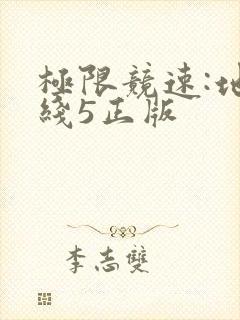 極限競速:地
綫5正版
李志雙